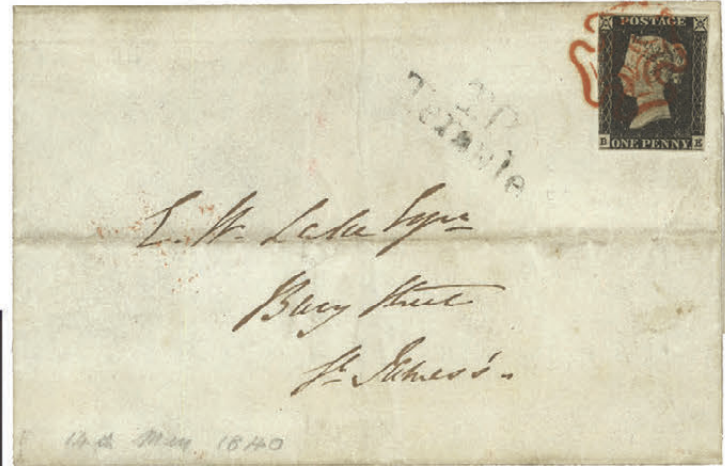 POSTAGE
ONE PENNY
T.P
Temple
E. W. Lake Esqre
Bury Street
St James's.
14th May 1840